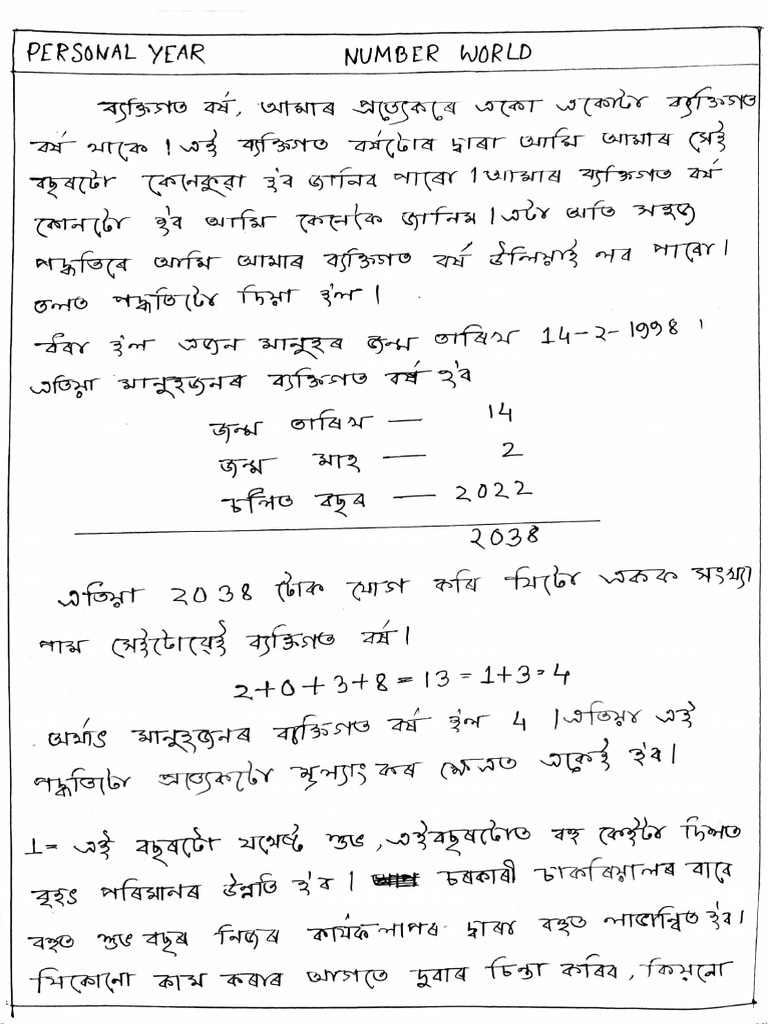 PERSONAL YEAR NUMBER WORLD
ব্যক্তিগত বৰ্ষ, আমাৰ প্ৰত্যেকৰে একো একোটা ব্যক্তিগত
বৰ্ষ থাকে। এই ব্যক্তিগত বৰ্ষটোৰ দ্বাৰা আমি আমাৰ সেই
বছৰটো কেনেকুৱা হ'ব জানিব পাৰো। আমাৰ ব্যক্তিগত বৰ্ষ
কোনটো হ'ব আমি কেনেকৈ জানিম। এটা অতি সহজ
পদ্ধতিৰে আমি আমাৰ ব্যক্তিগত বৰ্ষ উলিয়াই লব পাৰো।
তলত পদ্ধতিটো দিয়া হ'ল।
ধৰা হ'ল এজন মানুহৰ জন্ম তাৰিখ 14-2-1998।
এতিয়া মানুহজনৰ ব্যক্তিগত বৰ্ষ হ'ব
জন্ম তাৰিখ — 14
জন্ম মাহ — 2
চলিত বছৰ — 2022
2038
এতিয়া 2038 টোক যোগ কৰি যিটো একক সংখ্যা
পাম সেইটোয়েই ব্যক্তিগত বৰ্ষ।
2+0+3+8=13=1+3=4
অৰ্থাৎ মানুহজনৰ ব্যক্তিগত বৰ্ষ হ'ল 4। এতিয়া এই
পদ্ধতিটো প্ৰত্যেকটো মূল্যাংকৰ ক্ষেত্ৰত একেই হ'ব।
1= এই বছৰটো যথেষ্ট শুভ, এইবছৰটোত বহু কেইটা দিশত
বৃহৎ পৰিমানৰ উন্নতি হ'ব। চৰকাৰী চাকৰিয়ালৰ বাবে
বহুত শুভ বছৰ নিজৰ কাৰ্যকলাপৰ দ্বাৰা বহুত লাভান্বিত হ'ব।
যিকোনো কাম কৰাৰ আগতে দুবাৰ চিন্তা কৰিব, কিয়নো